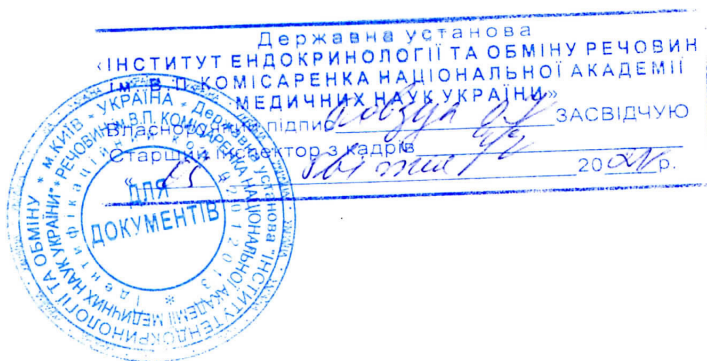 Державна установа
«ІНСТИТУТ ЕНДОКРИНОЛОГІЇ ТА ОБМІНУ РЕЧОВИН
ІМ. В.П. КОМІСАРЕНКА НАЦІОНАЛЬНОЇ АКАДЕМІЇ
МЕДИЧНИХ НАУК УКРАЇНИ»
Власноручний підпис ЗАСВІДЧУЮ
Старший інспектор з кадрів
20 р.
м.КИЇВ * УКРАЇНА * Державна установа "ІНСТИТУТ ЕНДОКРИНОЛОГІЇ ТА ОБМІНУ
РЕЧОВИН ІМ. В.П. КОМІСАРЕНКА НАЦІОНАЛЬНОЇ АКАДЕМІЇ МЕДИЧНИХ НАУК УКРАЇНИ"
Ідентифікаційний код
ДЛЯ
ДОКУМЕНТІВ